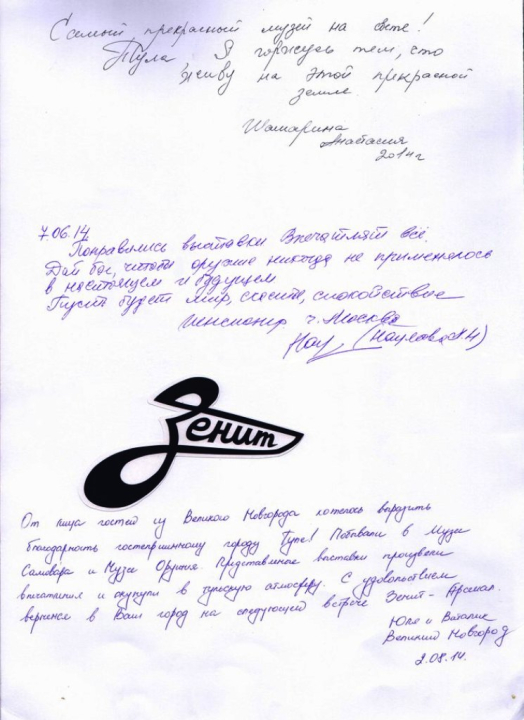 Самый прекрасный музей на свете!
Тула Я горжусь тем, что
живу на этой прекрасной
земле.
Шамарина
Анастасия
2014г
7.06.14
Понравились выставки Впечатляет всё.
Дай бог, чтобы оружие никогда не применялось
в настоящем и будущем
Пусть будет мир, счастье, спокойствие
Пенсионер г. Москва
Зенит
От лица гостей из Великого Новгорода хотелось выразить
благодарность гостеприимному городу Туле! Побывали в Музее
Самовара и Музее Оружия. Представленные выставки произвели
впечатления и окунули в тульскую атмосферу. С удовольствием
вернемся в Ваш город на следующей встрече Зенит-Арсенал.
Юля и Виталик
Великий Новгород
2.08.14.